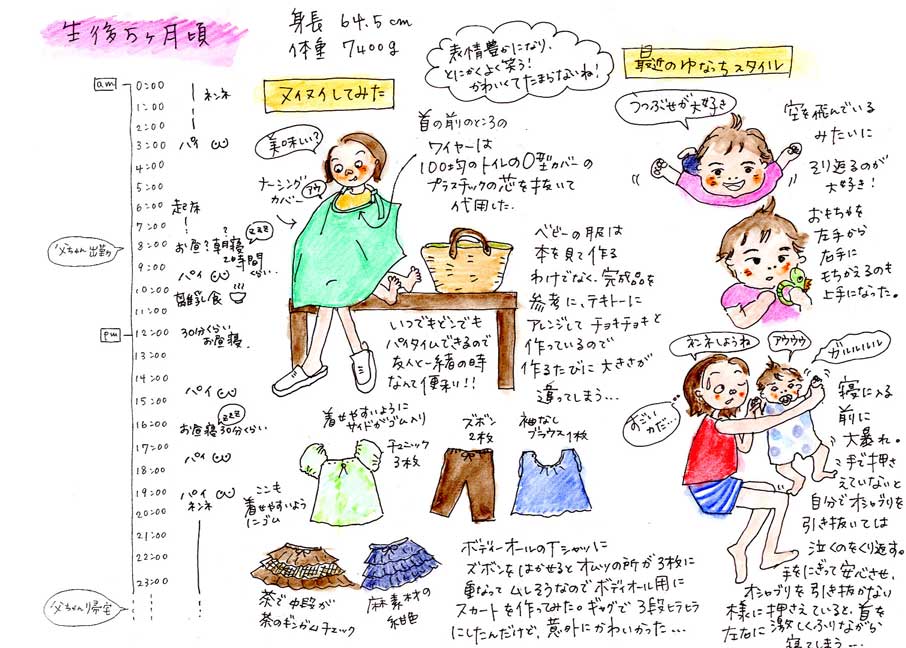 生後5ヶ月頃
身長 64.5cm
体重 7400g
表情豊かになり、
とにかくよく笑う!
かわいくてたまらないね!
am
0:00
ネンネ
1:00
2:00
3:00 パイ
4:00
5:00
6:00 起床
7:00
父ちゃん出勤
8:00 お昼?朝?寝
zzz
2時間
くらい…
9:00 パイ
10:00 離乳食
11:00
pm
12:00 30分くらい
お昼寝
13:00
14:00
パイ
15:00
16:00
zzz
お昼寝30分くらい
17:00
パイ
18:00
19:00 パイ
ネンネ
20:00
21:00
22:00
23:00
父ちゃん帰宅
ヌイヌイしてみた
美味しい?
アウ
ナーシング
カバー
首の前のところの
ワイヤーは
100均のトイレのO型カバーの
プラスチックの芯を抜いて
代用した。
いつでもどこでも
パイタイムできるので
友人と一緒の時
なんて便利!!
ベビーの服は
本を見て作る
わけでなく、完成品を
参考に、テキトーに
アレンジしてチョキチョキと
作っているので
作るたびに大きさが
違ってしまう…
着せやすいように
サイドがゴム入り
チュニック
3枚
ズボン
2枚
袖なし
ブラウス1枚
ここも
着せやすいよう
にゴム
茶で中段が
茶のギンガムチェック
麻素材の
紺色
ボディーオールのTシャツに
ズボンをはかせるとオムツの所が3枚に
重なってムレそうなのでボディオール用に
スカートを作ってみた。ギャグで3段ヒラヒラ
にしたんだけど、意外にかわいかった…
最近のゆなっちスタイル
うつぶせが大好き
空を飛んでいる
みたいに
そり返るのが
大好き!
おもちゃを
左手から
右手に
もちかえるのも
上手になった。
ネンネしようね
アウウウ
ガルルルル
すごい
力だ…
寝に入る
前に
大暴れ。
手で押さ
えていないと
自分でオシャブリを
引き抜いては
泣くのをくり返す。
手をにぎって安心させ、
オシャブリを引き抜かない
様に押さえていると、首を
左右に激しくふりながら
寝てしまう…